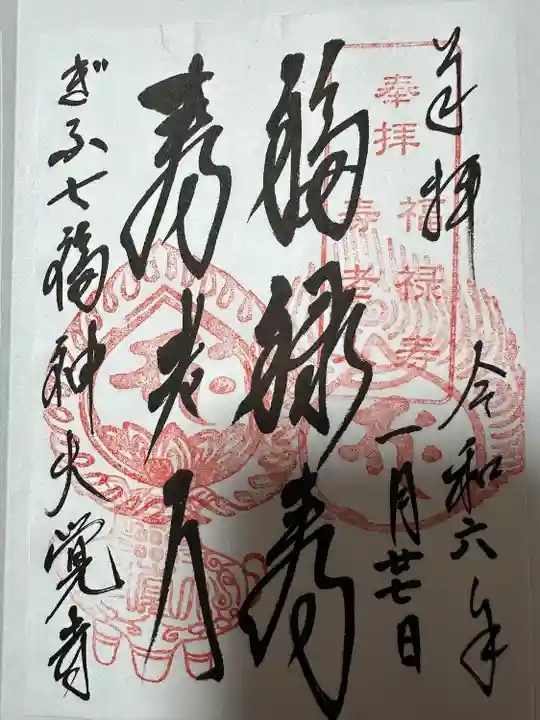 奉拝
令和六年
一月廿七日
奉拝
福禄寿
寿老
福禄寿
寿老人
ぎふ七福神大覚寺